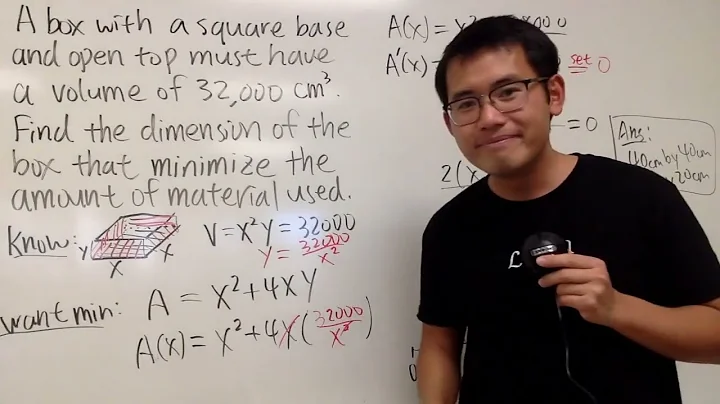 A box with a square base
and open top must have
a volume of 32,000 cm³.
Find the dimension of the
box that minimize the
amount of material used.
Know: Y X X V = X²Y = 32000
Y = 32000/X²
want min: A = X² + 4XY
A(X) = X² + 4X(32000/X²)
A(X) =
A'(X) = set 0
= 0
2(X
Ans:
40cm by 40cm
20cm
L